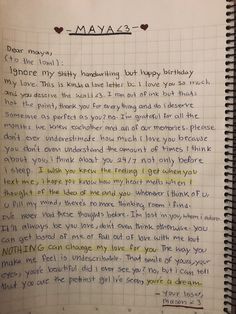 -MAYA<3-
Dear maya,
(to the lomll):
Ignore my shitty handwriting but happy birthday
my love. This is kinda a love letter bc I love you so much
and you deserve the world<3. I ran out of ink but thats
not the point, thank you for everything and do i deserve
someone as perfect as you? no. Im grateful for all the
months we knew eachother and all of our memories. please
don't ever underestimate how much I love you because
you don't even understand the amount of times i think
about you, i think about you 24/7 not only before
i sleep. I wish you knew the feeling i get when you
text me, i hope you know how my heart melts when i
thought of the idea of me and you. Whenever i think of u
u fill my mind; there's no more thinking room i find.
I've never had these thoughts before. I'm lost in you, whom i adore.
It'll always be you love, dont even think otherwise. you
can get tired of me or fall out of love with me but
NOTHING can change my love for you. The way you
make me feel is undescribable. That smile of yours, your
eyes, you're beautiful. did i ever see you? no, but i can tell
that you are the prettiest girl I've seen. you're a dream.
- your loser,
mason <3